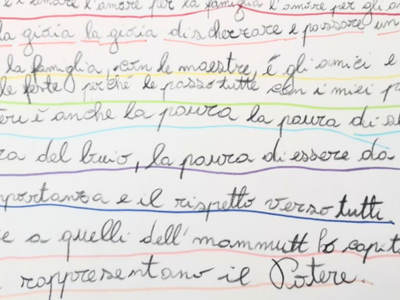 è l'amore l'amore per la famiglia l'amore per gli
la gioia la gioia di scherzare e passare un
la famiglia, con le maestre, e gli amici e
le feste perché le passo tutte con i miei
è anche la paura la paura di
del buio, la paura di essere da
e il rispetto verso tutti
e a quelli dell'mammutt lo
rappresentano il Potere.